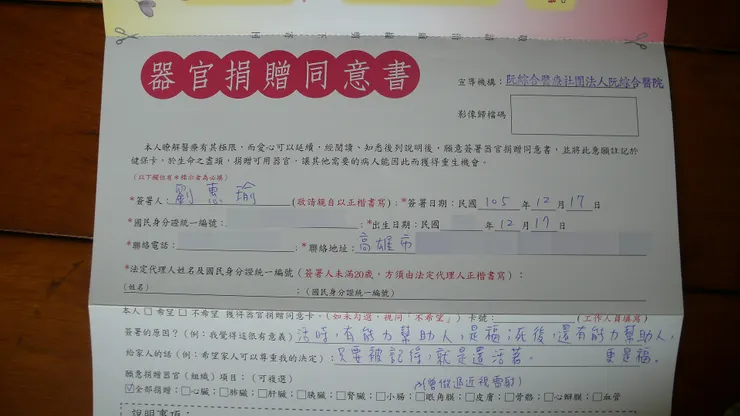 器官捐贈同意書
宣導機構：阮綜合醫療社團法人阮綜合醫院
影像歸檔碼
本人瞭解醫療有其極限，而愛心可以延續，經閱讀、知悉後列說明後，願意簽署器官捐贈同意書，並將此意願註記於
健保卡。於生命之盡頭，捐贈可用器官，讓其他需要的病人能因此而獲得重生機會。
(以下欄位有*標示者為必填)
*簽署人：劉惠瑜(敬請親自以正楷書寫)；*簽署日期：民國 105 年 12 月 17 日
*國民身分證統一編號： *出生日期：民國 年 12 月 17 日
*聯絡電話： *聯絡地址：高雄市
*法定代理人姓名及國民身分證統一編號（簽署人未滿20歲，方須由法定代理人正楷書寫）：
(姓名) ；(國民身分證統一編號)
本人 □ 希望 □ 不希望 獲得器官捐贈同意卡。(如未勾選，視同「不希望」) 卡號： (工作人員填寫)
簽署的原因？(例：我覺得這很有意義) 活時，有能力幫助人，是福；死後，還有能力幫助人，
給家人的話 (例：希望家人可以尊重我的決定)：只要被記得，就是還活著。 更是福。
願意捐贈器官（組織）項目：(可複選) (曾做過近視雷射)
☑全部捐贈；□心臟；□肺臟；□肝臟；□胰臟；□腎臟；□小腸；□眼角膜；□皮膚；□骨骼；□心瓣膜；□血管
說明事項：